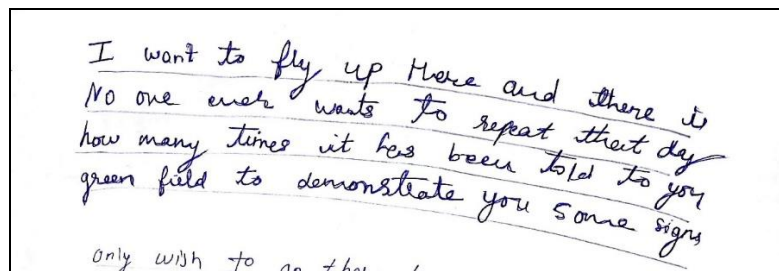 I want to fly up Here and there is
No one ever wants to repeat that day
how many times it has been told to you
green field to demonstrate you some signs
only wish to